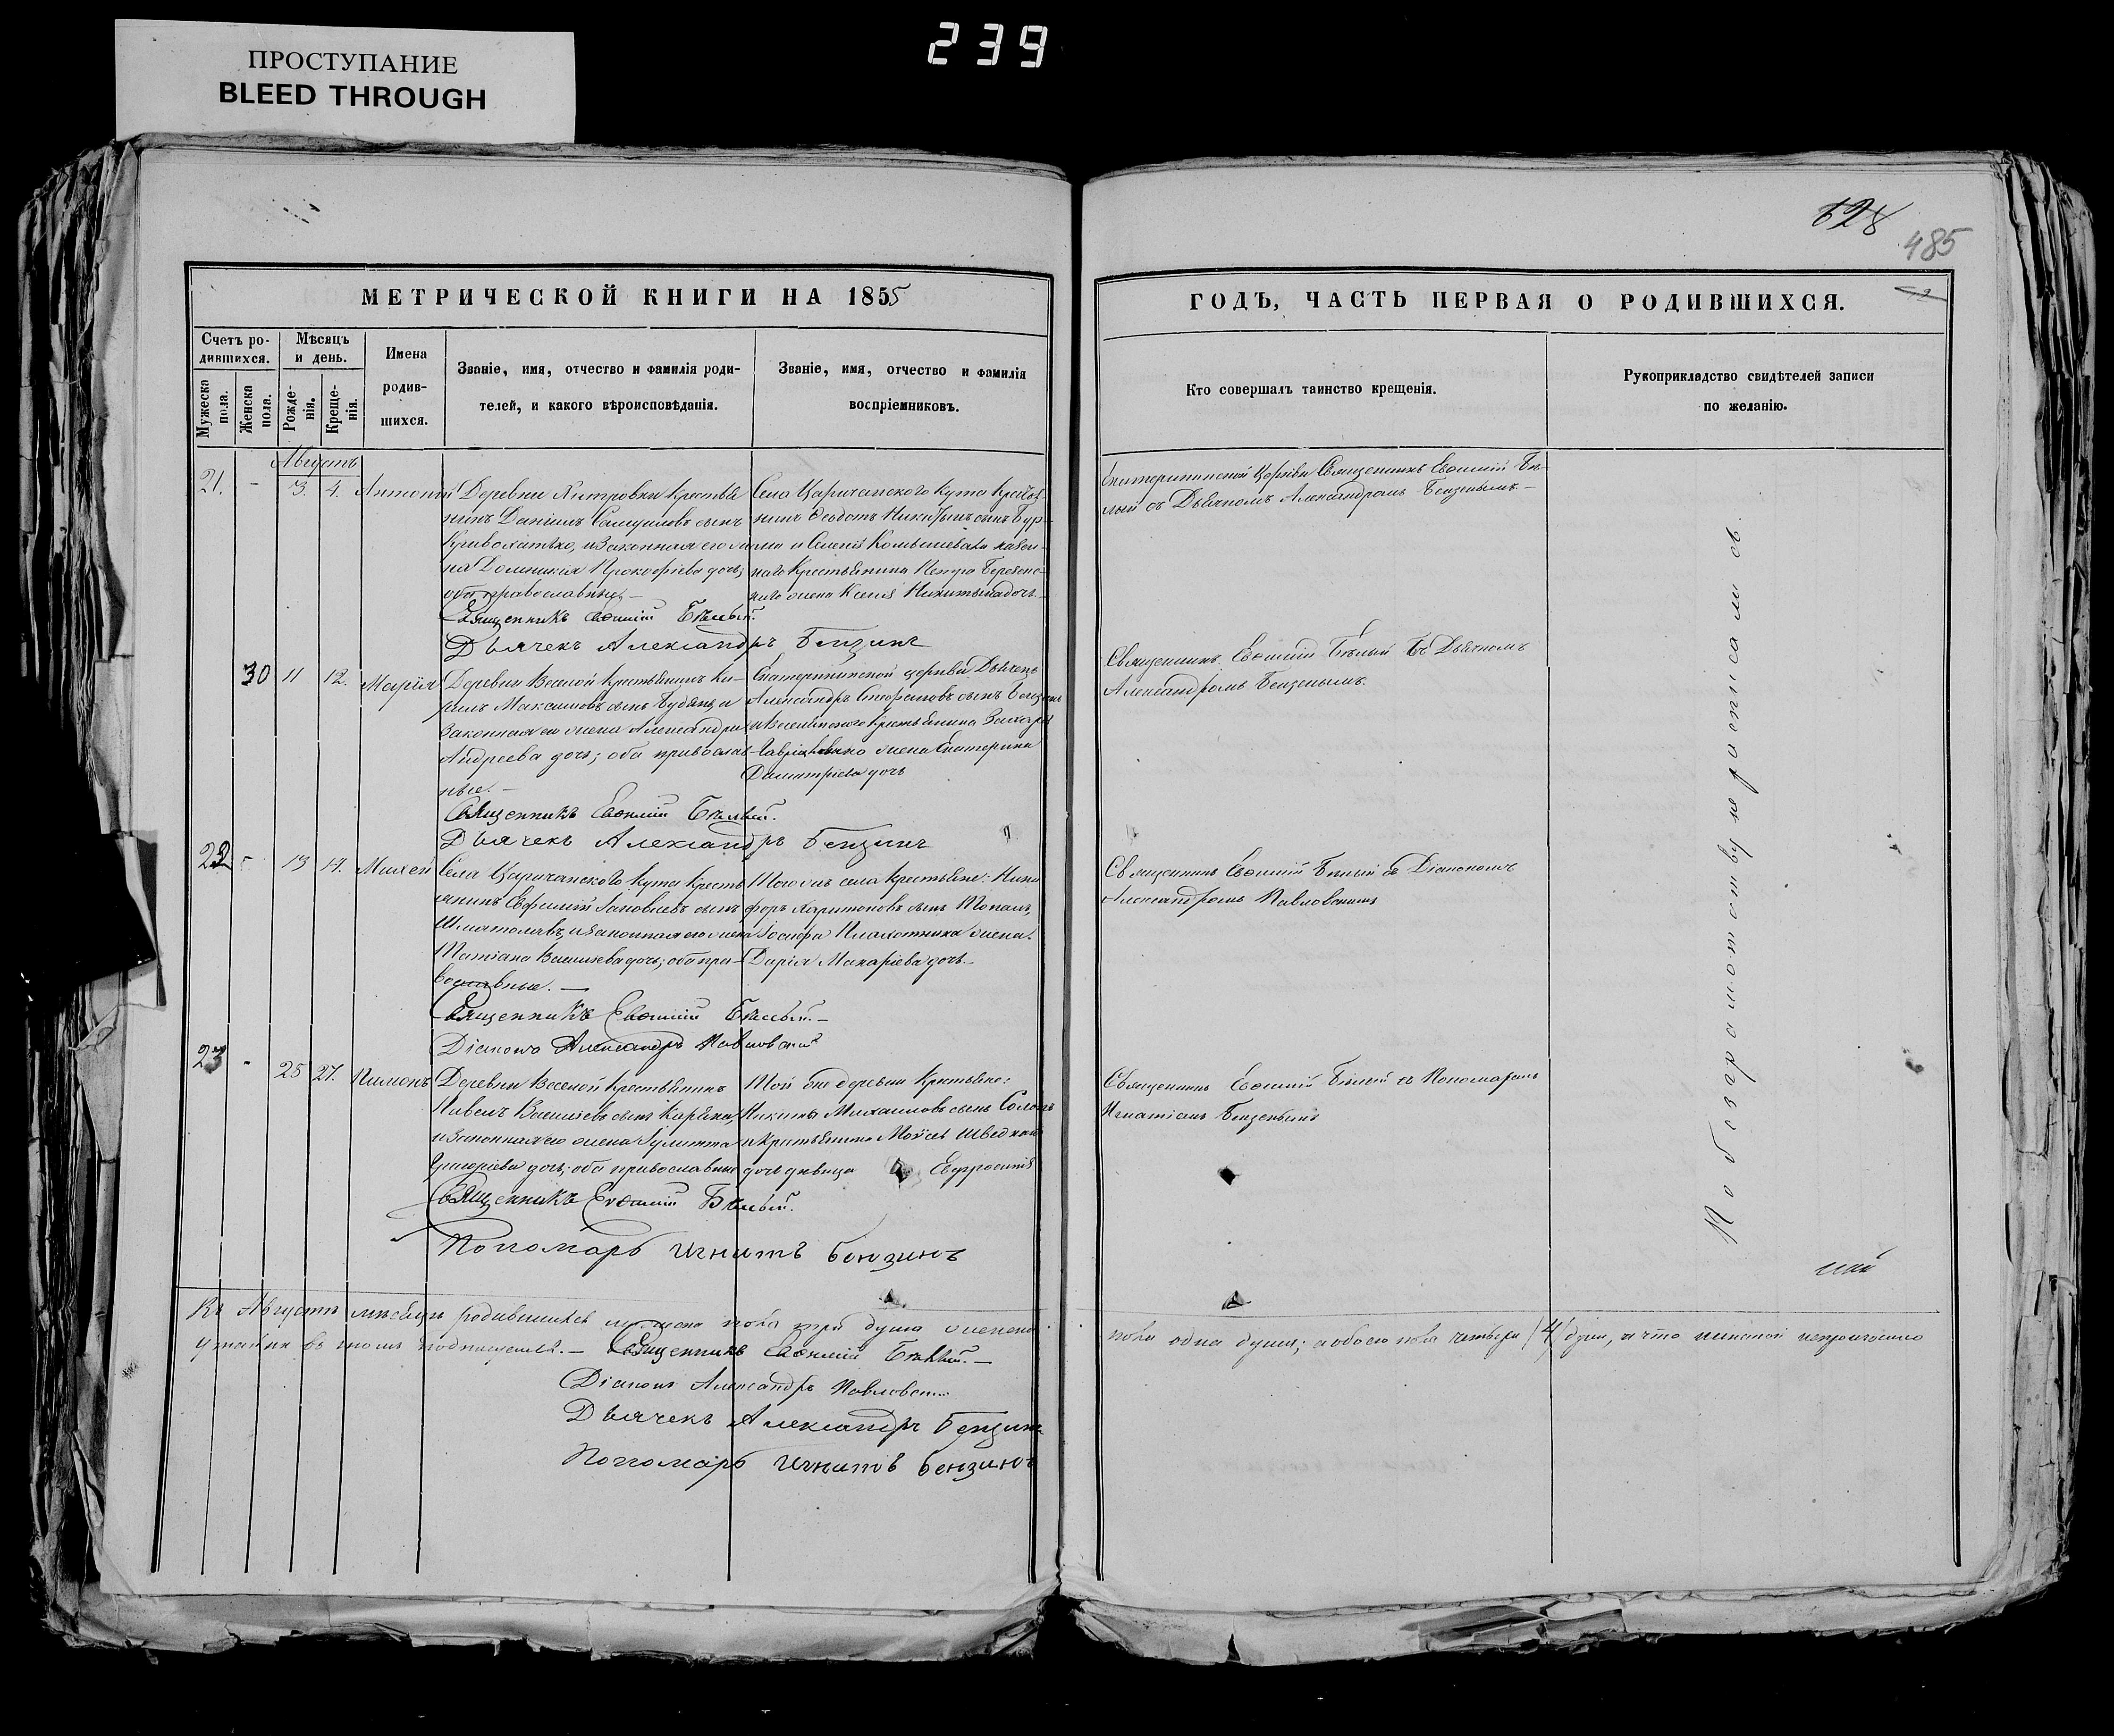 239
ПРОСТУПАНИЕ
BLEED THROUGH
628
485
МЕТРИЧЕСКОЙ КНИГИ НА 1855
ГОДЪ, ЧАСТЬ ПЕРВАЯ О РОДИВШИХСЯ.
Счетъ ро-
дившихся.
Мужеска пола.
Женска пола.
Мѣсяцъ
и день.
Рожде-
нія.
Креще-
нія.
Имена
родив-
шихся.
Званіе, имя, отчество и фамилія роди-
телей, и какого вѣроисповѣданія.
Званіе, имя, отчество и фамилія
воспріемниковъ.
Кто совершалъ таинство крещенія.
Рукоприкладство свидѣтелей записи
по желанію.
Августъ
21. - 3. 4. Антоній
Деревни Хитровки Крестья
нинъ Даніилъ Самуиловъ сынъ
и законная его
на Домникія Прокофіева дочь;
оба православные,—
Священникъ Евѳимій Бѣлый.
Дьячекъ Александръ Бензинъ
Села Царичанского Кута Крестья
нинъ Ѳеодотъ Никитинъ сынъ Бур-
наго Крестьянина Петра
жена Ксенія Никитина дочь.
Екатерининской Церкви Священникъ Евѳимій Бѣ-
лый съ Дьячкомъ Александромъ Бензинымъ.—
30 11 12. Марія
Деревни Веселой Крестьянинъ Ки-
рилъ Максимовъ сынъ и
законная его жена Александра
Андреева дочь; оба православ-
ные.—
Священникъ Евѳимій Бѣлый.
Дьячекъ Александръ Бензинъ
Екатерининской церкви Дьячекъ
Александръ Стефановъ сынъ Бензинъ
Крестьянина Захарія
жена Екатерина
Димитріева дочь
Священникъ Евѳимій Бѣлый съ Дьячкомъ
Александромъ Бензинымъ.
22 - 13 14. Михей
Села Царичанского Кута Кресть
янинъ Евфимій Іаковлевъ сынъ
и законная его жена
Татіана Васильева дочь; оба пра-
вославные.—
Священникъ Евѳимій Бѣлый.—
Діаконъ Александръ Павловскій
Того же села Крестьяне: Ники
форъ Харитоновъ сынъ
Іосифа Плахотника жена
Дарія Макаріева дочь.
Священникъ Евѳимій Бѣлый съ Діакономъ
Александромъ Павловскимъ
23 - 25 27. Пименъ
Деревни Веселой Крестьянинъ
Павелъ Васильевъ сынъ
и законная его жена Іулитта
Григоріева дочь; оба православные
Священникъ Евѳимій Бѣлый.
Пономарь Игнатъ Бензинъ
Той же деревни Крестьяне:
Никита Михаиловъ сынъ
и крестьянина Моисея
дочь дѣвица Евфросинія
Священникъ Евѳимій Бѣлый съ Пономаремъ
Игнатіемъ Бензинымъ
По безграмотству не расписались.
Въ Августѣ мѣсяцѣ родившихся мужеска пола три душа женска
пола одна душа; а обоего пола четыре /4/ души, и что никакой
утайки въ томъ подписуемся.— Священникъ Евѳимій Бѣлый.—
Діаконъ Александръ Павловскій
Дьячекъ Александръ Бензинъ
Пономарь Игнатъ Бензинъ